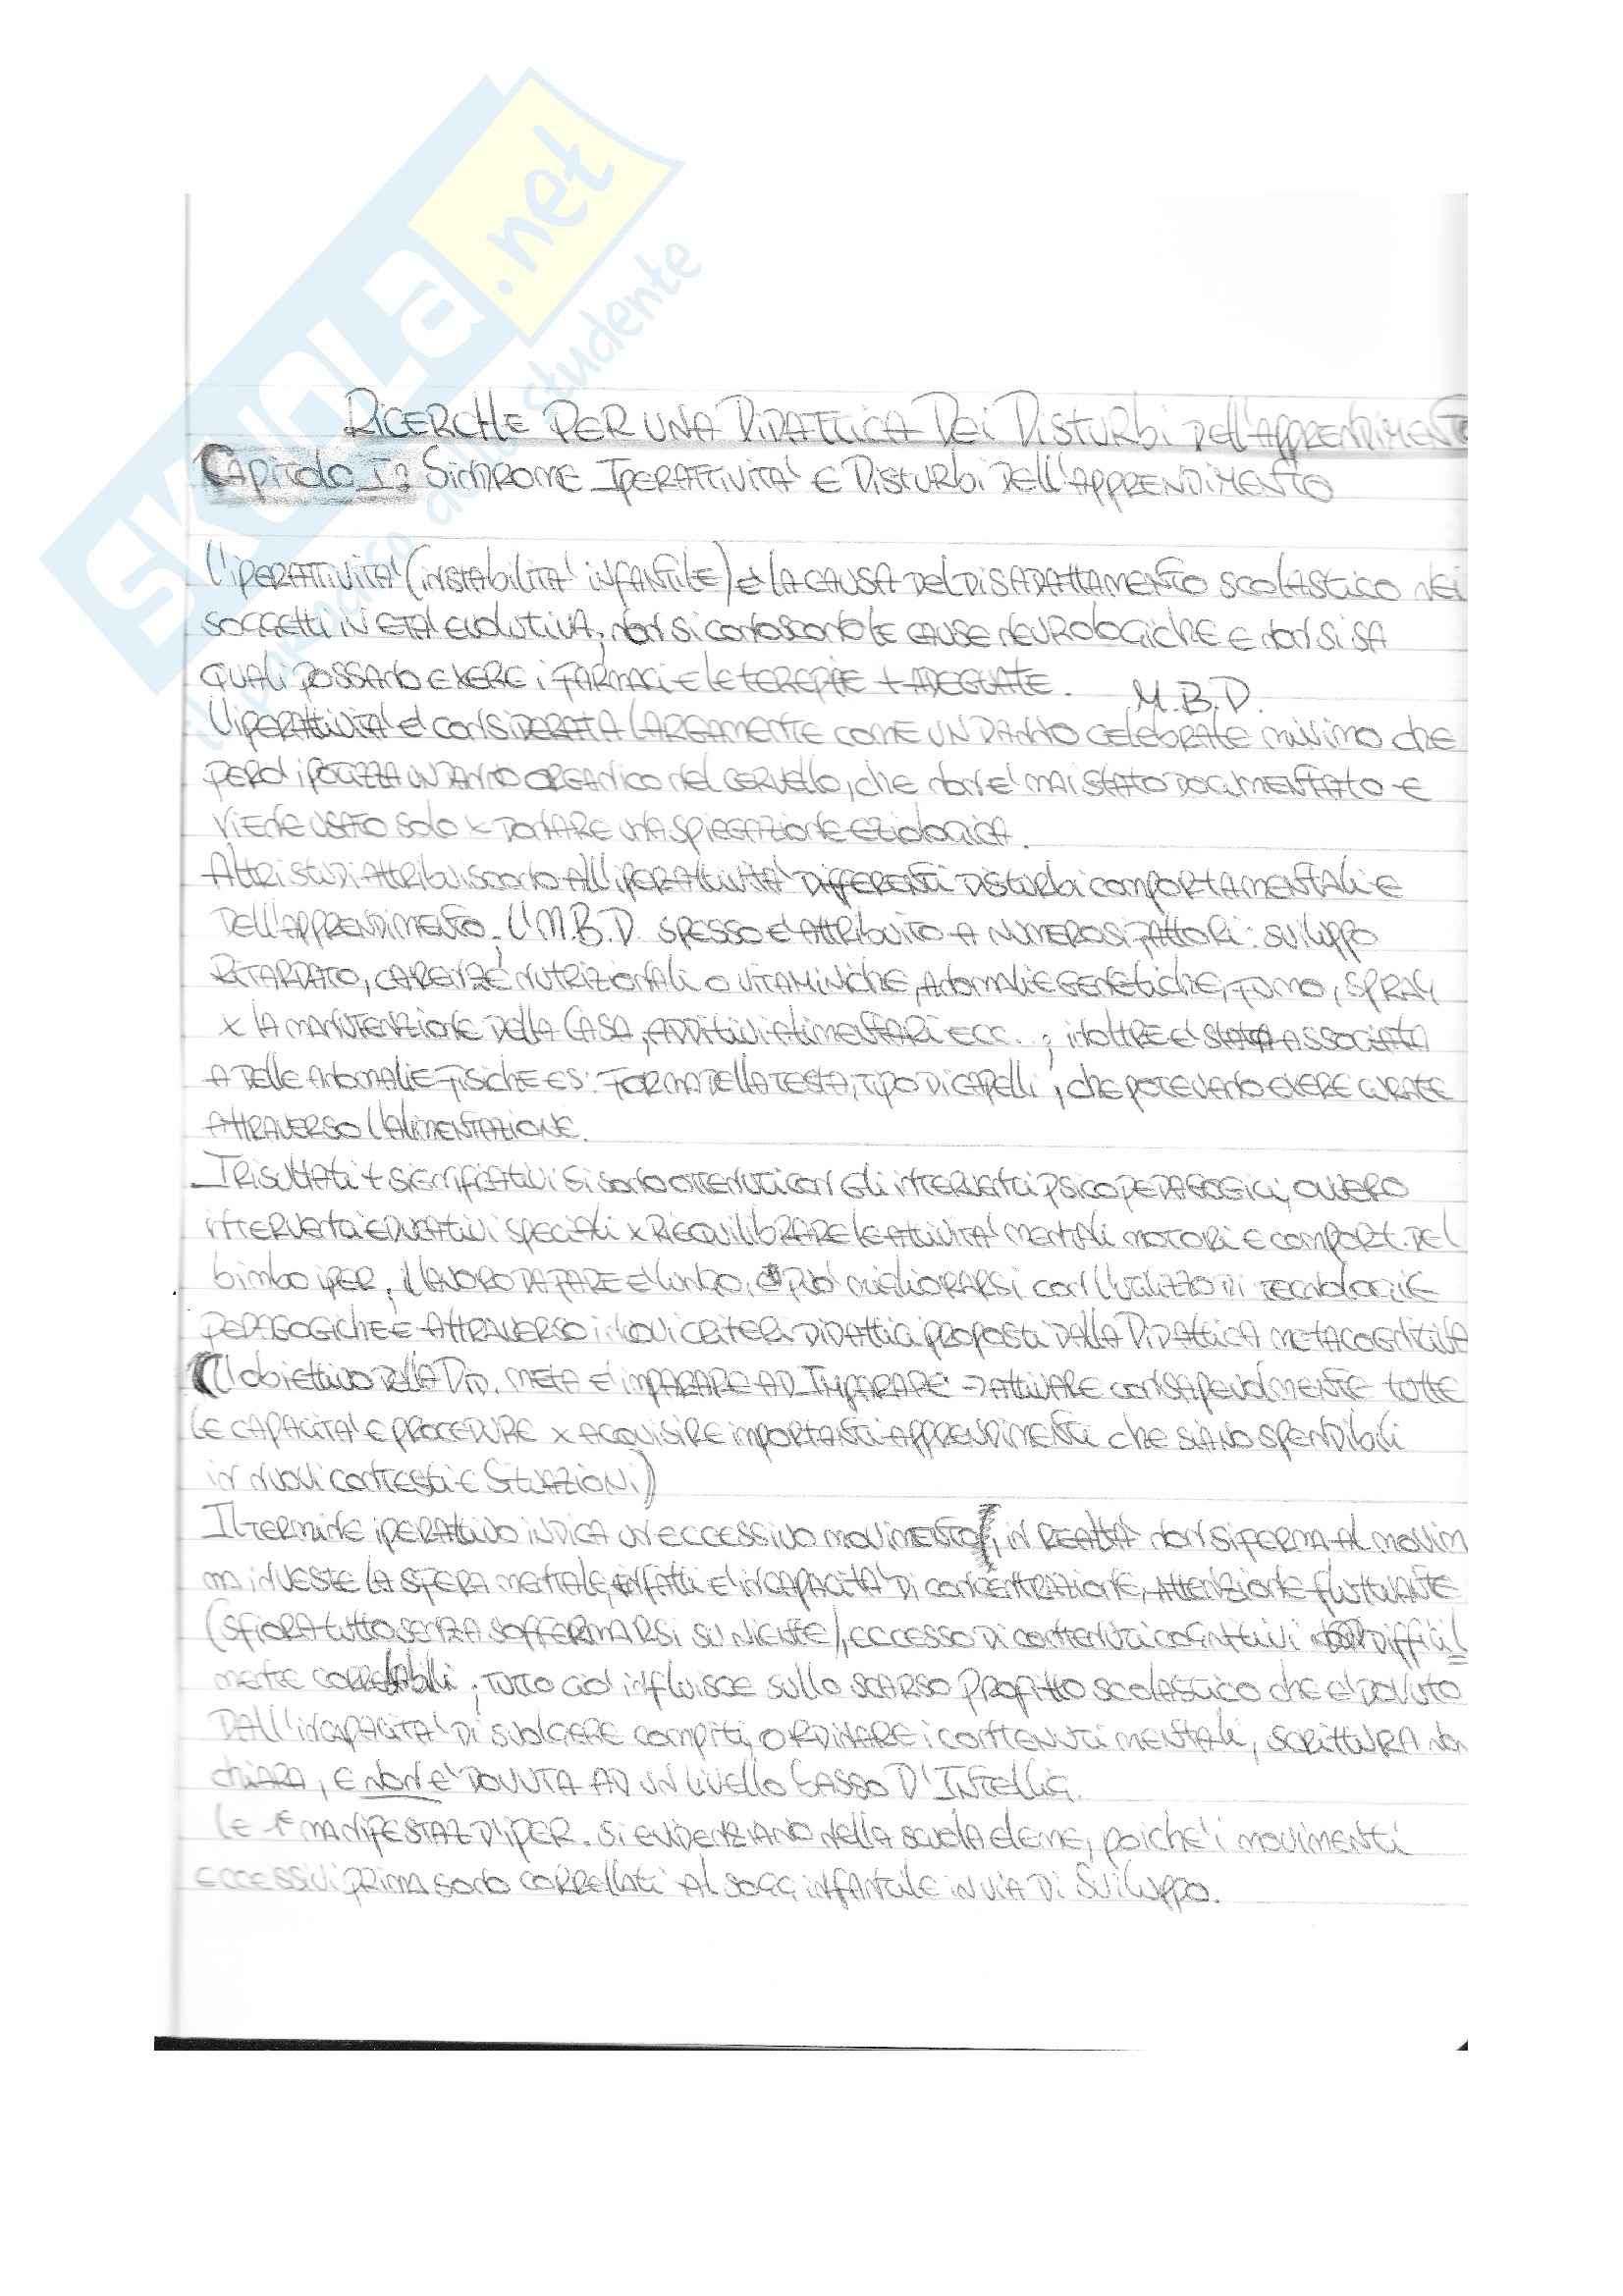 SKUOLA.net
il paradiso dello studente
RICERCHE PER UNA DIDATTICA DEI DISTURBI DELL'APPRENDIMENTO
Capitolo I: SINDROME IPERATTIVITA' E DISTURBI DELL'APPRENDIMENTO
L'IPERATTIVITA' (INSTABILITA' INFANTILE) è LA CAUSA DEL DISADATTAMENTO SCOLASTICO NEI
SOGGETTI IN ETA' EVOLUTIVA; non si conoscono le CAUSE NEUROLOGICHE E non SI SA
QUALI POSSANO ESSERE i FARMACI E le TEREPIE + ADEGUATE.
M.B.D.
L'IPERATTIVITA' è CONSIDERATA LARGAMENTE COME UN DANNO CELEBRALE minimo che
PERO' IPOTIZZA UN DANNO ORGANICO NEL CERVELLO, che non è MAI STATO DOCUMENTATO E
VIENE USATO SOLO x DONARE UNA SPIEGAZIONE EZIOLOGICA.
Altri studi attribuiscono All'iperattività DIFFERENTI DISTURBI COMPORTAMENTALI E
DELL'APPRENDIMENTO; L'M.B.D. SPESSO è ATTRIBUITO A NUMEROSI FATTORI: SVILUPPO
RITARDATO, CARENZE NUTRIZIONALI O VITAMINICHE, Anomalie GENETICHE, FUMO, SPRAY
x LA MANUTENZIONE DELLA CASA, ADDITIVI ALIMENTARI ECC..; inoltre è STATA ASSOCIATA
A DELLE Anomalie FISICHE ES: FORMA DELLA TESTA, TIPO DI CAPELLI, che POTEVANO ESSERE CURATE
ATTRAVERSO L'ALIMENTAZIONE.
I RISULTATI + SIGNIFICATIVI Si sono OTTENUTI CON Gli INTERVENTI PSICOPEDAGOGICI, OVVERO
INTERVENTI EDUCATIVI SPECIALI x RIEQUILIBRARE le ATTIVITA' MENTALI MOTORI E COMPORT. DEL
bimbo iPER; il LAVORO DA FARE è lungo, e può migliorarsi con l'utilizzo DI TECNOLOGIE
PEDAGOGICHE E ATTRAVERSO i nuovi CRITERI DIDATTICI proposti DALLA DIDATTICA METACOGNITIVA
(L'obiettivo DELLA DID. META è IMPARARE AD IMPARARE → ATTIVARE consapevolmente TUTTE
le CAPACITA' E PROCEDURE x ACQUISIRE IMPORTANTI APPRENDIMENTI che SIANO SPENDIBILI
in nuovi contesti E SITUAZIONI)
Il TERMINE IPERATTIVO INDICA UN ECCESSIVO MOVIMENTO, in REALTA' non SI FERMA Al MOVIM
ma INVESTE LA SFERA MENTALE, infatti è INCAPACITA' DI CONCENTRAZIONE, ATTENZIONE FLUTTUANTE
(SFIORA tutto SENZA SOFFERMARSI SU NIENTE), ECCESSO DI CONTENUTI COGNITIVI DIFFICIL
MENTE CORRELABILI; TUTTO CIO' INFLUISCE SULLO SCARSO PROFITTO SCOLASTICO che è DOVUTO
DALL'INCAPACITA' DI SVOLGERE COMPITI, ORDINARE i CONTENUTI MENTALI, SCRITTURA non
CHIARA, E non è DOVUTA AD UN LIVELLO BASSO D'INTELLIG.
le 1e MANIFESTAZ D'IPER. SI EVIDENZIANO NELLA SCUOLA ELEME, poichè i movimenti
ECCESSIVI PRIMA sono CORRELATI AL SOGG INFANTILE IN VIA DI SVILUPPO.